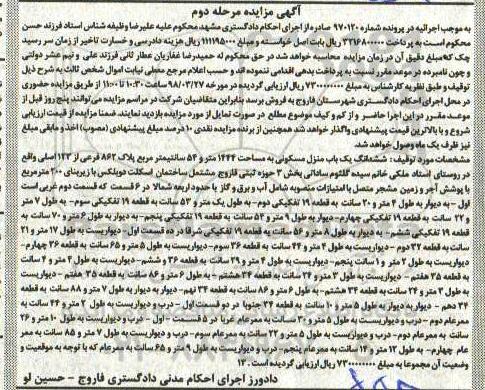 آگهی مزایده مرحله دوم
به موجب اجرائیه در پرونده شماره ۹۷۰۱۲۰ صادره از اجرای احکام دادگستری مشهد محکوم علیه علیرضا وظیفه شناس استاد فرزند حسن
محکوم است به پرداخت ۳۳۱۶۸۰۰۰۰۰ ریال بابت اصل خواسته و مبلغ ۱۱۱۱۹۵۰۰۰ ریال هزینه دادرسی و خسارت تاخیر از زمان سر رسید
چک که مبلغ دقیق آن در زمان مزایده محاسبه خواهد شد در حق محکوم له حمیدرضا غفاریان عطار ثانی فرزند علی و نیم عشر دولتی و
چون نامبرده در موعد مقرر نسبت به پرداخت بدهی اقدامی ننموده اند و حسب اعلام مرجع معطی نیابت اموال شخص ثالث به شرح ذیل
توقیف و طبق نظریه کارشناس به مبلغ ۷۳۰۰۰۰۰۰۰۰ ریال ارزیابی گردیده در مورخه ۹۸/۰۳/۲۷ ساعت ۱۰:۳۰ تا ۱۱:۰۰ از طریق مزایده حضوری
در محل اجرای احکام دادگستری شهرستان فاروج به فروش برسد بنابراین متقاضیان شرکت در مراسم مزایده می توانند پنج روز قبل از
موعد مقرر در این اجرا حاضر و از کم و کیف موضوع مطلع در صورت تمایل از مورد مزایده بازدید نمایند. ضمنا مزایده از قیمت ارزیابی
شروع و با بالاترین قیمت پیشنهادی واگذار خواهد شد همچنین از برنده مزایده نقدی ۱۰ درصد مبلغ پیشنهادی (مصوب) اخذ و مابقی مبلغ
نیز ظرف یک ماه وصول خواهد شد.
مشخصات مورد توقیف: ششدانگ یک باب منزل مسکونی به مساحت ۱۴۴۴ متر و ۵۴ سانتیمتر مربع پلاک ۸۶۲ فرعی از ۱۲۳ اصلی واقع
در روستای استاد ملکی خانم سیده کلثوم ساداتی بخش ۳ حوزه ثبتی فاروج مشتمل ساختمان اسکلت دوبلکس با زیربنای ۲۰۰ مترمربع
با پوشش آجر و زمین مشجر متصل با امتیازات منصوبه شامل آب و برق و گاز با حدود اربعه شمالا در ۶ قسمت که قسمت دوم غربی است
اول – به دیوار به طول ۴ متر و ۳۰ سانت به قطعه ۱۹ تفکیکی دوم – به طول یک متر و ۵۳ سانت به قطعه ۱۹ تفکیکی سوم – به طول ۷ متر
و ۲۲ سانت به قطعه ۱۹ تفکیکی چهارم – دیوار به طول ۹ متر و ۵۳ سانت به قطعه ۱۹ تفکیکی پنجم – به دیوار به طول ۶ متر و ۷۰ سانت به
قطعه ۱۹ تفکیکی ششم – به دیوار به طول ۸ متر و ۵۶ سانت به قطعه ۱۹ تفکیکی شرقا در ده قسمت اول – دیواریست به طول ۱۷ متر و ۲۱
سانت به قطعه ۳۲ دوم – دیواریست به طول ۴ متر و ۴۴ سانت به قطعه ۳۶ سوم – دیواریست به طول ۵ متر و ۶۵ سانت به قطعه ۳۶ چهارم –
دیواریست به طول ۲ متر و ۱ سانت پنجم – دیواریست به طول ۴ متر و ۲۹ سانت به قطعه ۳۶ و ششم – دیواریست به طول ۲ متر و ۴ سانت
به قطعه ۳۵ هفتم – دیواریست به طول ۳ متر و ۲۴ سانت به قطعه ۳۴ هشتم – به طول ۶ متر و ۸۶ سانت به قطعه ۳۵ هفتم – دیواریست
به طول ۳ متر و ۲۴ سانت به قطعه ۳۴ هشتم – به طول ۶ متر و ۸۶ سانت به قطعه ۳۴ نهم – دیوار به دیوار به طول ۷ متر و ۸۸ سانت به قطعه
۳۴ دهم – دیوار به دیوار به طول ۵ متر و ۱۰ سانت به قطعه ۳۴ جنوبا در دو قسمت اول – درب و دیواریست به طول ۲ متر و ۴۴ سانت به
معبر عام دوم – درب و دیواریست به طول ۵ متر و ۳۰ سانت به معبر عام غربا در ۵ قسمت – اول – درب و دیواریست به طول ۱۰ متر و ۲۶
سانت به معبر عام دوم – درب و دیواریست به طول ۵ متر و ۲۲ سانت به معبر عام سوم – درب و دیواریست به طول ۷ متر و ۸۵ سانت به معبر
عام چهارم – به طول ۱۲ متر و ۱۴ سانت به معبر عام پنجم – درب و دیواریست به طول ۹ متر و ۶۵ سانت به معبر عام که با توجه به موقعیت و
وضعیت آن مجموعا به مبلغ ۷۳۰۰۰۰۰۰۰۰ ریال ارزیابی گردیده است. ۱۲
دادورز اجرای احکام مدنی دادگستری فاروج – حسین لو